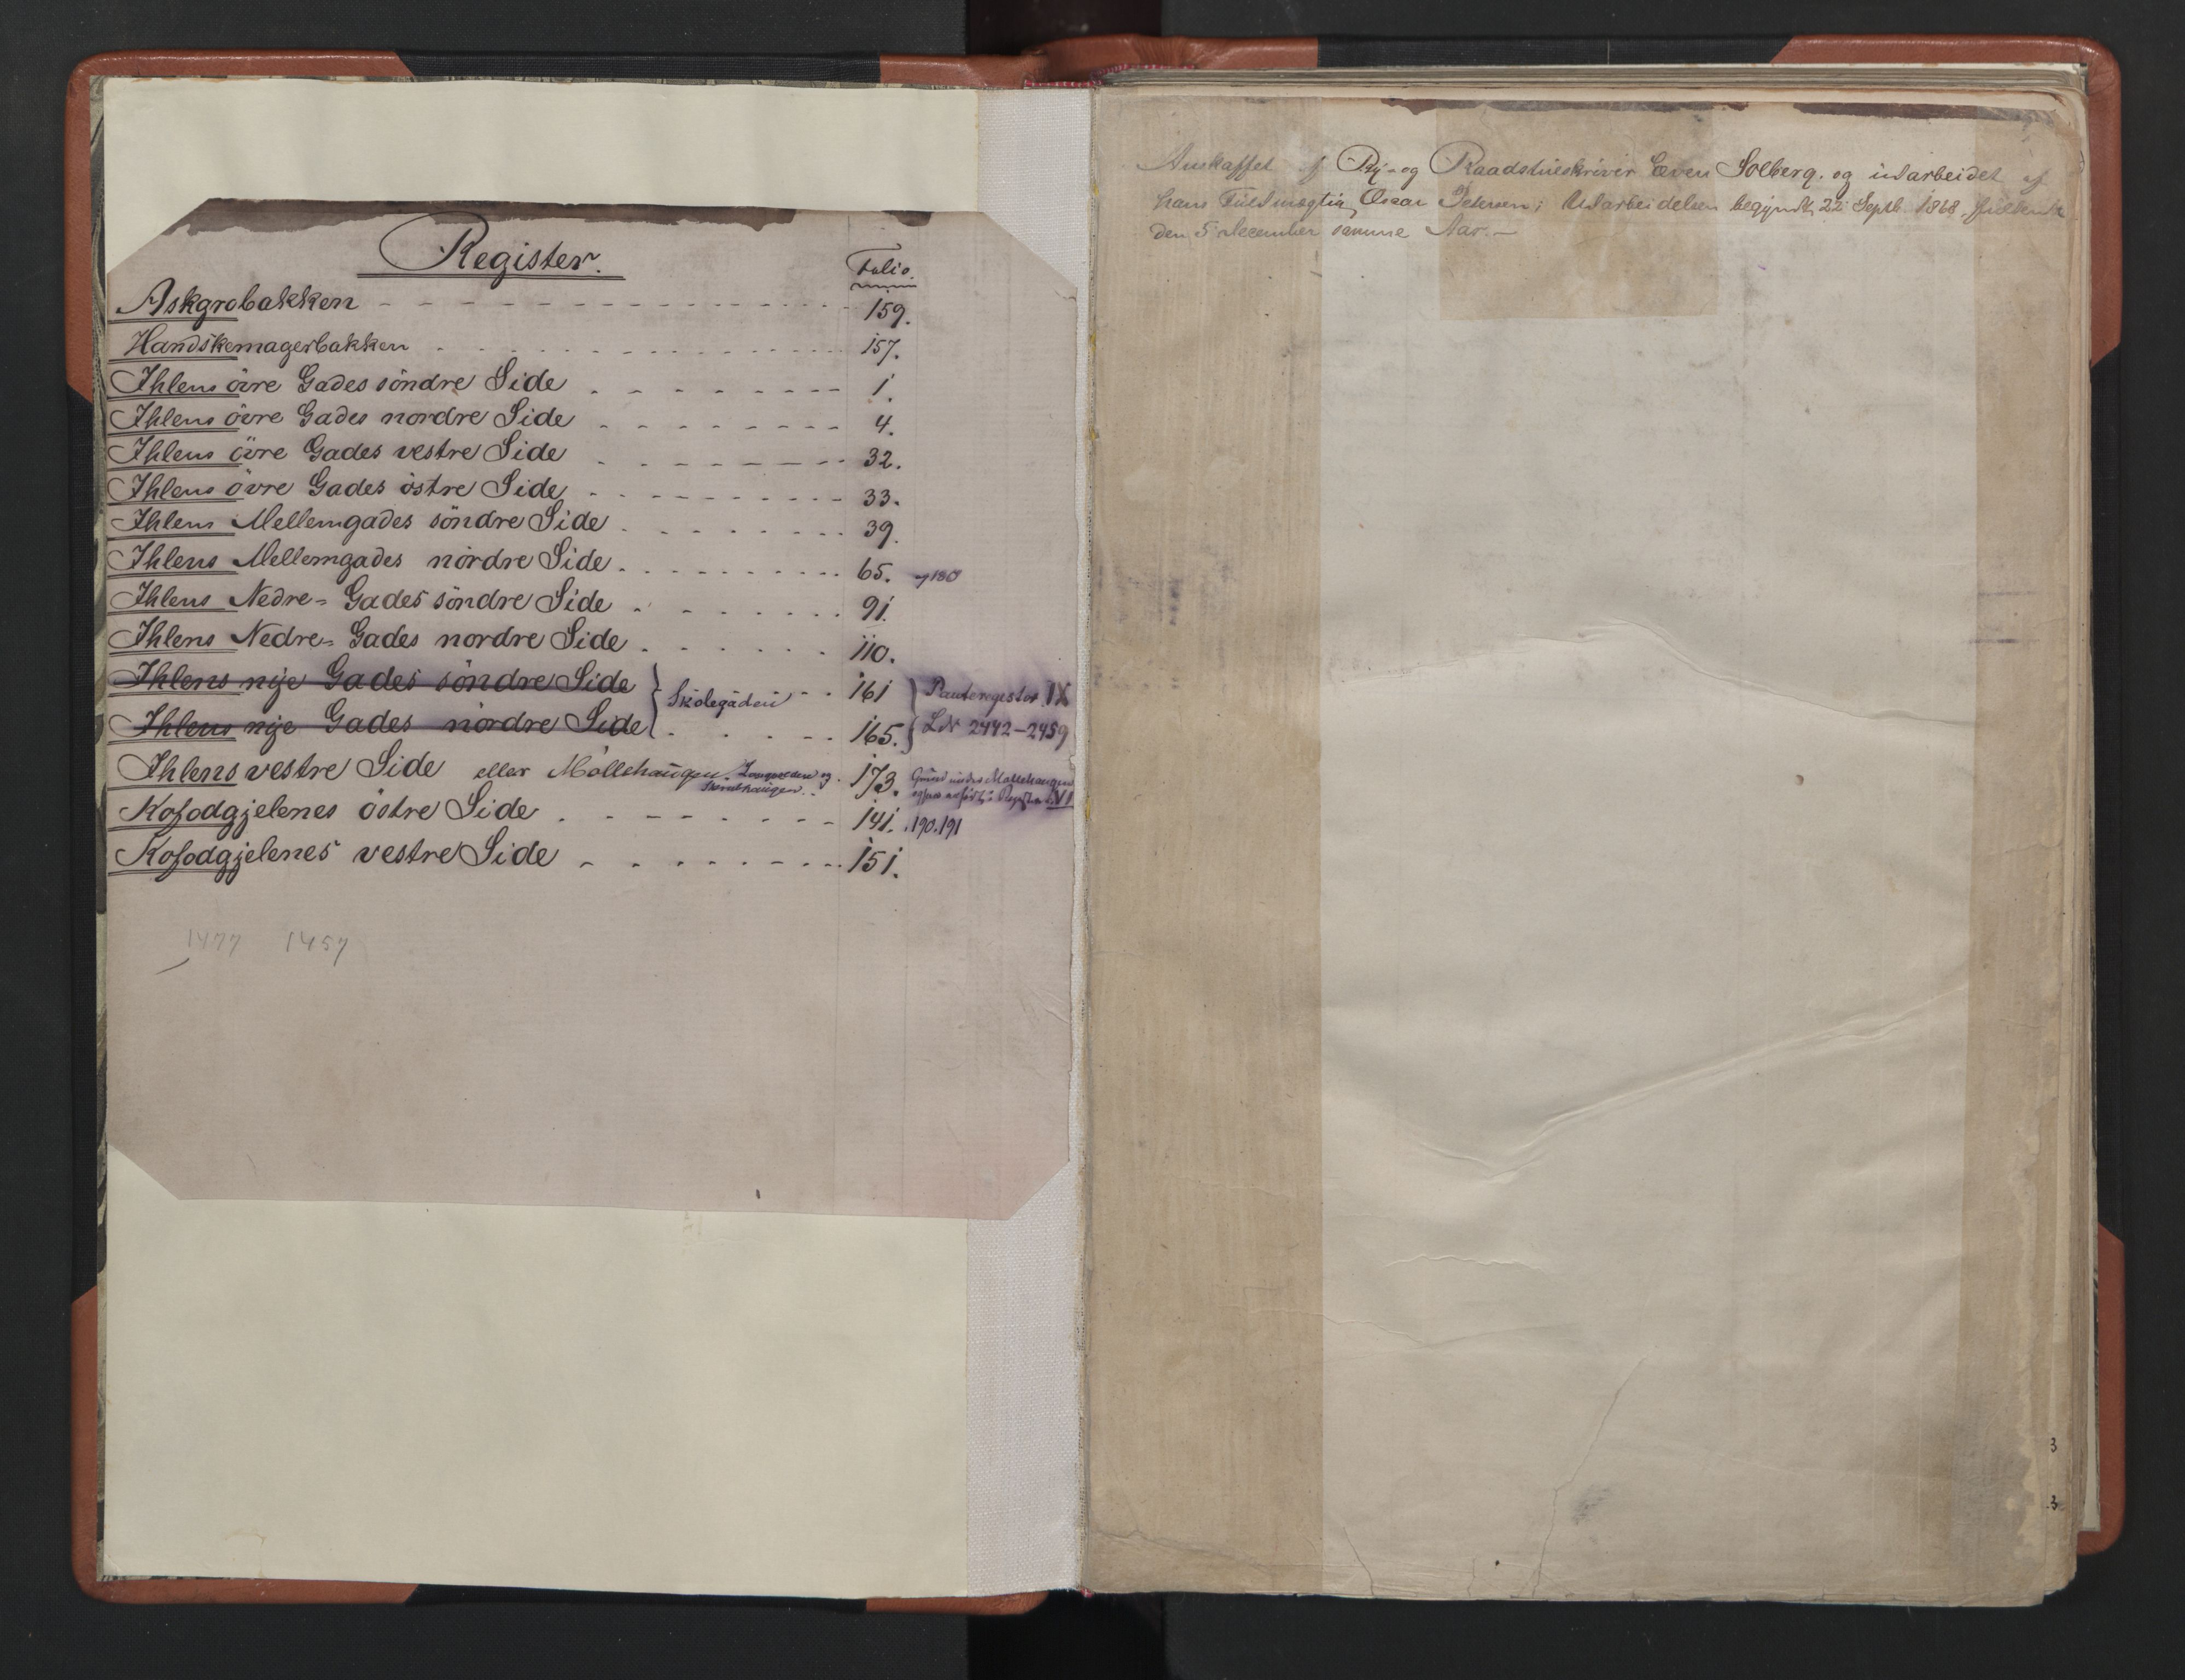 Register.
Folio.
Askgrobakken 159.
Handskemagerbakken 157.
Ihlens övre Gades söndre Side 1.
Ihlens övre Gades nordre Side 4.
Ihlens övre Gades vestre Side 32.
Ihlens övre Gades östre Side 33.
Ihlens Mellemgades söndre Side 39.
Ihlens Mellemgades nordre Side 65. og 180
Ihlens Nedre= Gades söndre Side 91.
Ihlens Nedre= Gades nordre Side 110.
Ihlens nye Gades söndre Side 161
Skolegaden
Panteregister IX
Ihlens nye Gades nordre Side 165.
LN 2442-2459
Ihlens vestre Side eller Möllehaugen og 173.
Grund under Möllehaugen
Register VI
Kofodgjelenes östre Side 141. 190. 191
Kofodgjelenes vestre Side 151.
1477 1457
Anskaffet af By- og Raadstueskriver Even Solberg. og udarbeidet af
hans Fuldmægtig Oscar Petersen; Udarbeidelsen begyndt 22 Septb. 1868. fuldendt
den 5 December samme Aar.
3
3